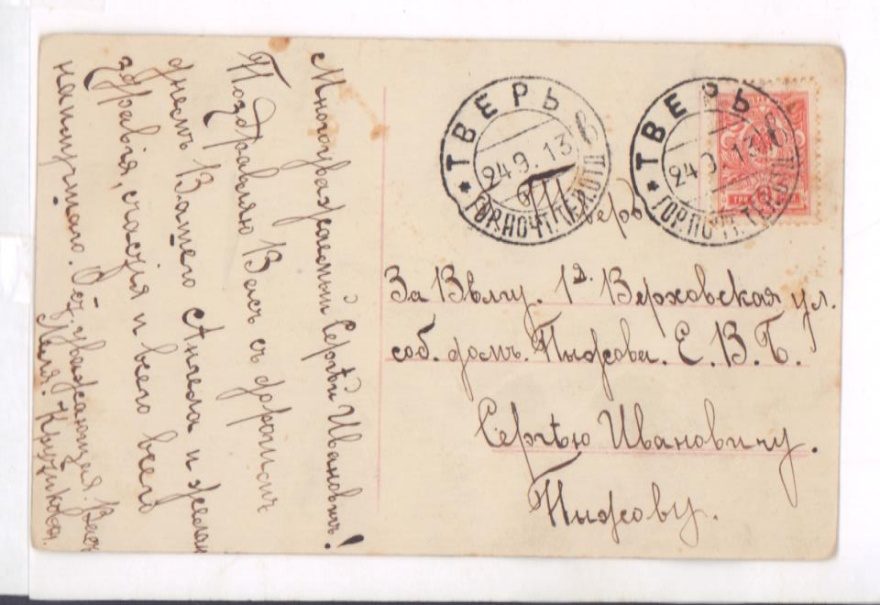 Многоуважаемый Сергѣй Ивановичъ!
Поздравляю Васъ съ дорогимъ
днемъ Вашего Ангела и желаю
здравія, счастія и всего всего
наилучшаго. уважающая Васъ
Леля
ТВЕРЬ
24.9.13
в
ГОР.ПОЧТ.ТЕЛ.ОТД
ТВЕРЬ
24.9.13
в
ГОР.ПОЧТ.ТЕЛ.ОТД
Тверь
За Волгу. 1я. Верховская ул.
соб. домъ. Пыжова. Е. В. Б.
Сергѣю Ивановичу.
Пыжову.